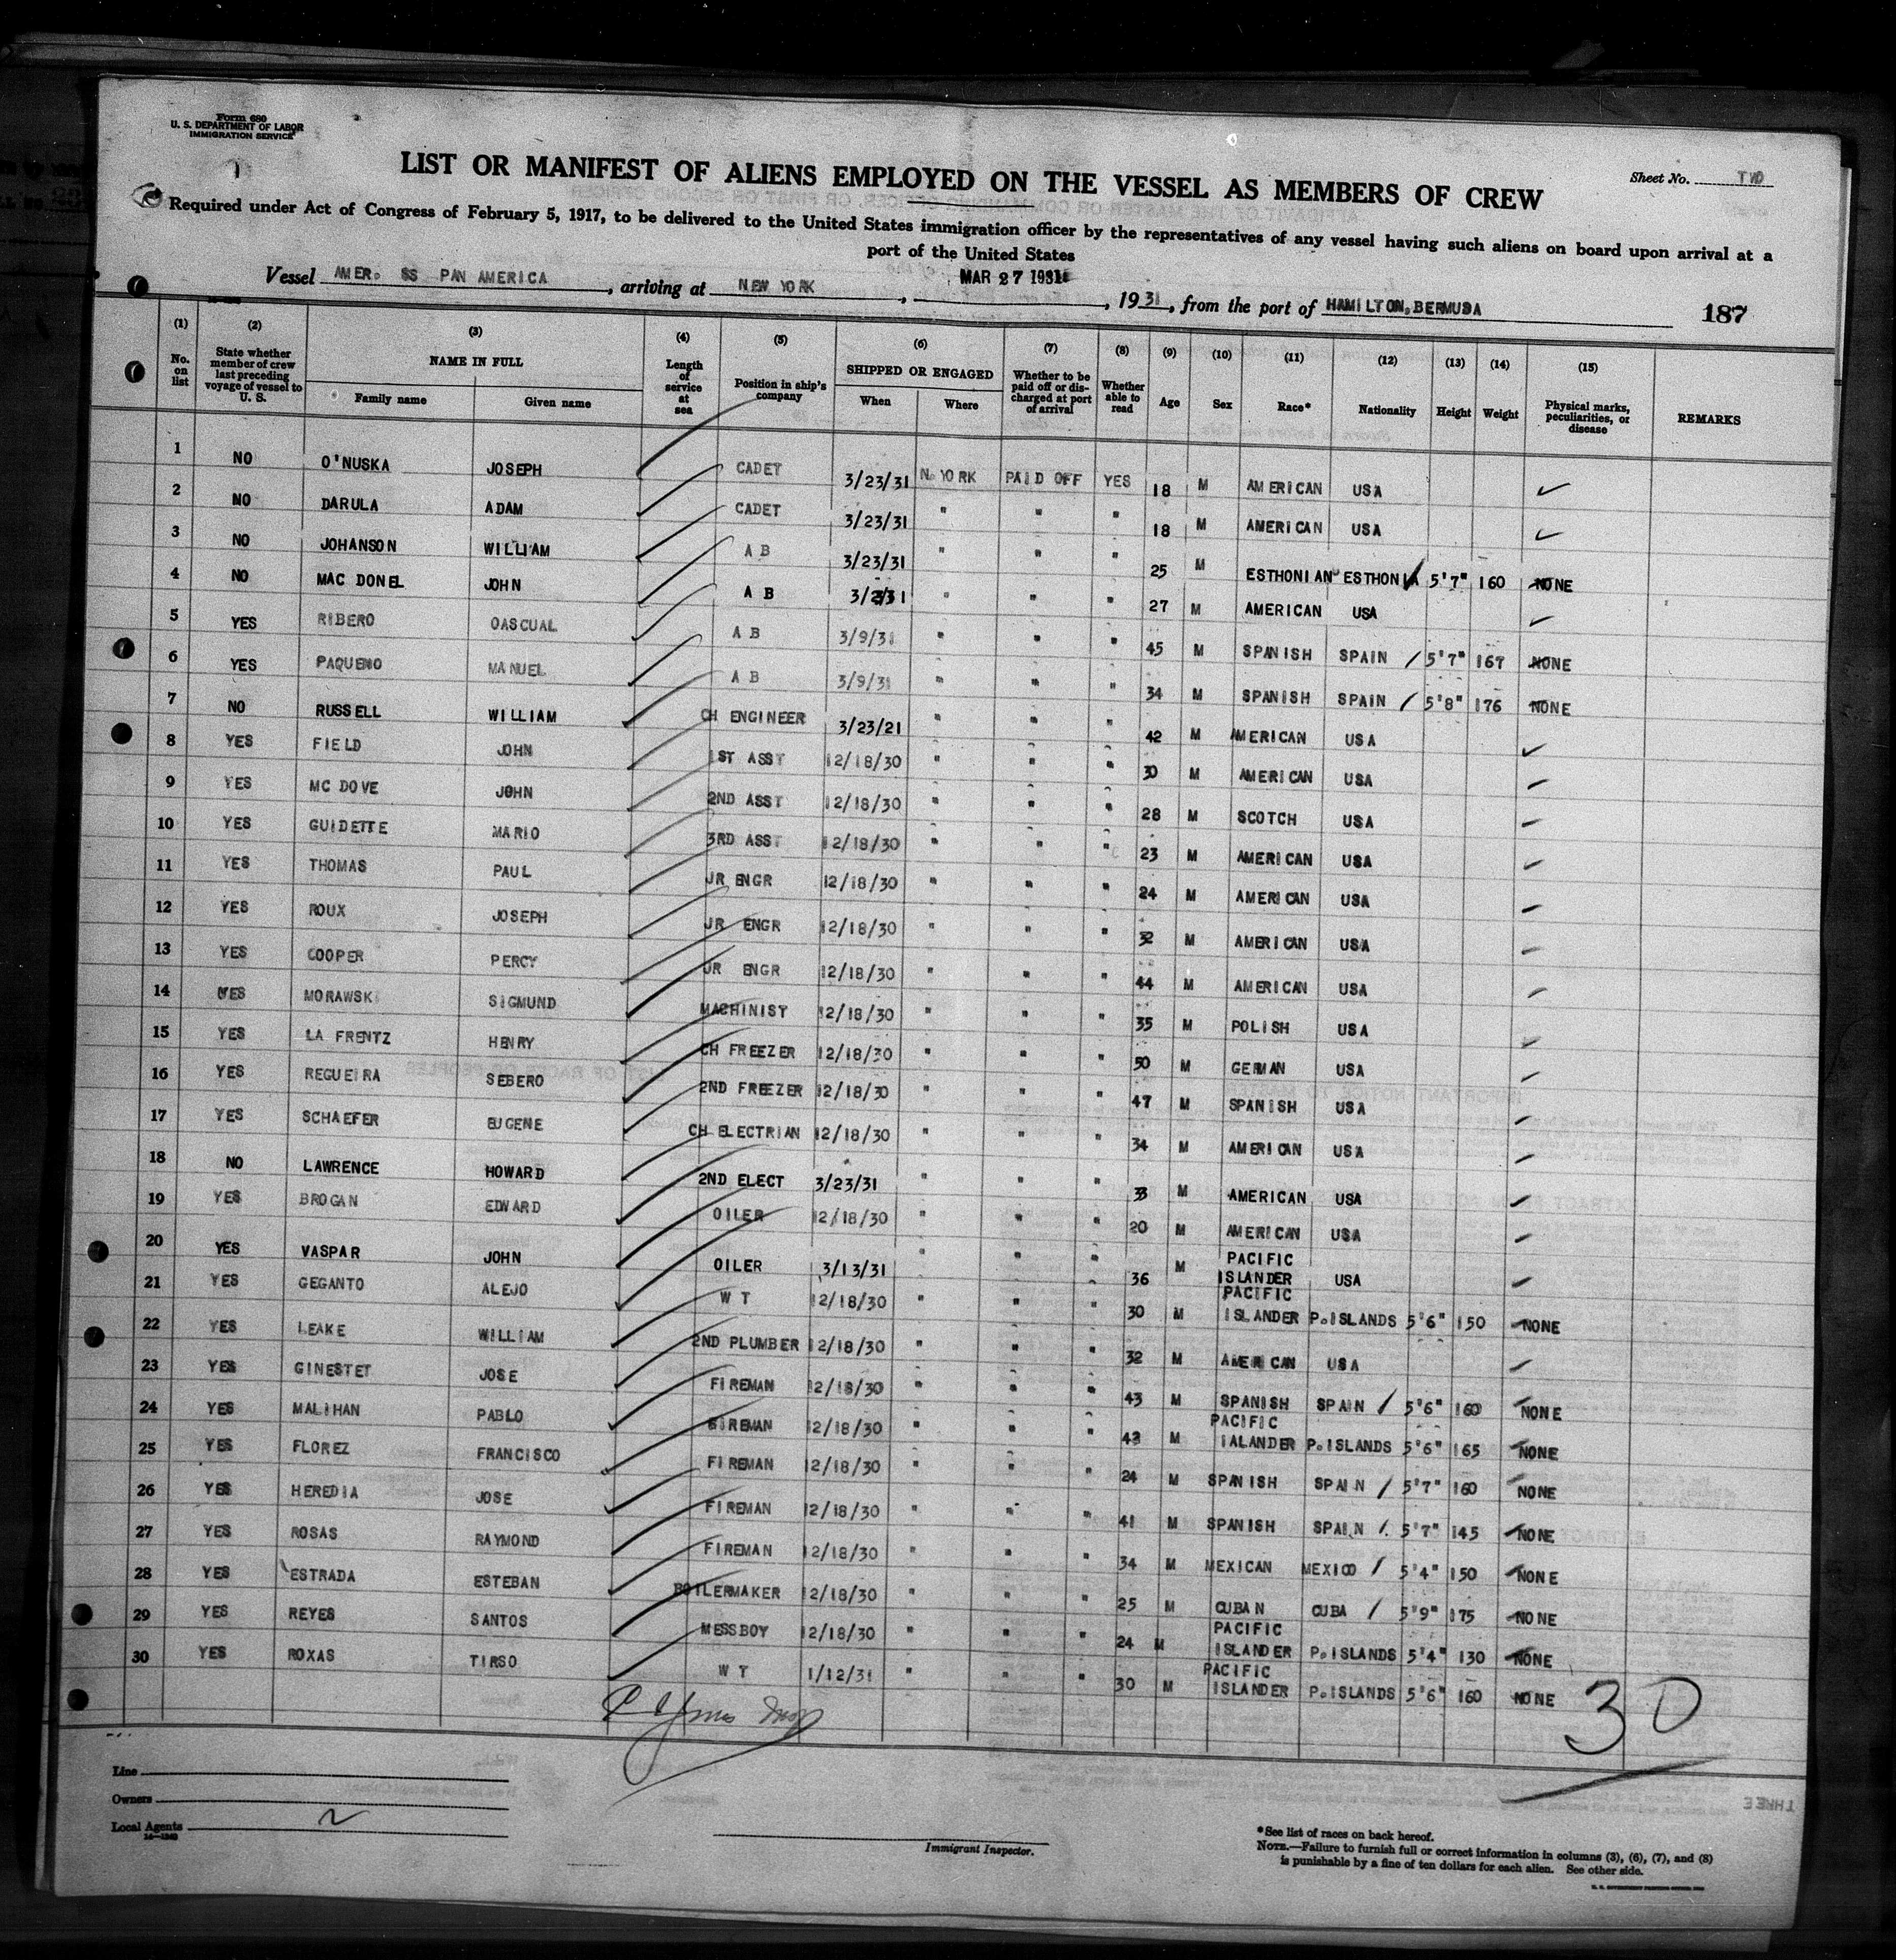 Form 680
U. S. DEPARTMENT OF LABOR
IMMIGRATION SERVICE
LIST OR MANIFEST OF ALIENS EMPLOYED ON THE VESSEL AS MEMBERS OF CREW
Sheet No. TWO
Required under Act of Congress of February 5, 1917, to be delivered to the United States immigration officer by the representatives of any vessel having such aliens on board upon arrival at a
port of the United States
Vessel AMER. SS PAN AMERICA, arriving at NEW YORK, MAR 27 1931, 1931, from the port of HAMILTON, BERMUDA 187
(1) (2) (3) (4) (5) (6) (7) (8) (9) (10) (11) (12) (13) (14) (15)
No. on list State whether member of crew last preceding voyage of vessel to U. S. NAME IN FULL Family name Given name Length of service at sea Position in ship's company SHIPPED OR ENGAGED When Where Whether to be paid off or discharged at port of arrival Whether able to read Age Sex Race* Nationality Height Weight Physical marks, peculiarities, or disease REMARKS
1 NO O'NUSKA JOSEPH CADET 3/23/31 N. YORK PAID OFF YES 18 M AMERICAN USA
2 NO DARULA ADAM CADET 3/23/31 " " " 18 M AMERICAN USA
3 NO JOHANSON WILLIAM A B 3/23/31 " " " 25 M ESTHONIAN ESTHONIA 5'7" 160 NONE
4 NO MAC DONEL JOHN A B " " " 27 M AMERICAN USA
5 YES RIBERO OASCUAL A B 3/9/31 " " " 45 M SPANISH SPAIN 5'7" 167 NONE
6 YES PAQUENO MANUEL A B 3/9/31 " " " 34 M SPANISH SPAIN 5'8" 176 NONE
7 NO RUSSELL WILLIAM CH ENGINEER 3/23/21 " " " 42 M AMERICAN USA
8 YES FIELD JOHN 1ST ASST 12/18/30 " " " 30 M AMERICAN USA
9 YES MC DOVE JOHN 2ND ASST 12/18/30 " " " 28 M SCOTCH USA
10 YES GUIDETTE MARIO 3RD ASST 12/18/30 " " " 23 M AMERICAN USA
11 YES THOMAS PAUL JR ENGR 12/18/30 " " " 24 M AMERICAN USA
12 YES ROUX JOSEPH JR ENGR 12/18/30 " " " 32 M AMERICAN USA
13 YES COOPER PERCY JR ENGR 12/18/30 " " " 44 M AMERICAN USA
14 YES MORAWSKI SIGMUND MACHINIST 12/18/30 " " " 35 M POLISH USA
15 YES LA FRENTZ HENRY CH FREEZER 12/18/30 " " " 50 M GERMAN USA
16 YES REGUEIRA SEBERO 2ND FREEZER 12/18/30 " " " 47 M SPANISH USA
17 YES SCHAEFER EUGENE CH ELECTRIAN 12/18/30 " " " 34 M AMERICAN USA
18 NO LAWRENCE HOWARD 2ND ELECT 3/23/31 " " " 33 M AMERICAN USA
19 YES BROGAN EDWARD OILER 12/18/30 " " " 20 M AMERICAN USA
20 YES VASPAR JOHN OILER 3/13/31 " " " 36 M PACIFIC ISLANDER USA
21 YES GEGANTO ALEJO W T 12/18/30 " " " 30 M PACIFIC ISLANDER P. ISLANDS 5'6" 150 NONE
22 YES LEAKE WILLIAM 2ND PLUMBER 12/18/30 " " " 32 M AMERICAN USA
23 YES GINESTET JOSE FIREMAN 12/18/30 " " " 43 M SPANISH SPAIN 5'6" 160 NONE
24 YES MALIHAN PABLO FIREMAN 12/18/30 " " " 42 M PACIFIC IALANDER P. ISLANDS 5'6" 165 NONE
25 YES FLOREZ FRANCISCO FIREMAN 12/18/30 " " " 24 M SPANISH SPAIN 5'7" 160 NONE
26 YES HEREDIA JOSE FIREMAN 12/18/30 " " " 41 M SPANISH SPAIN 5'7" 145 NONE
27 YES ROSAS RAYMOND FIREMAN 12/18/30 " " " 34 M MEXICAN MEXICO 5'4" 150 NONE
28 YES ESTRADA ESTEBAN BOILERMAKER 12/18/30 " " " 25 M CUBAN CUBA 5'9" 175 NONE
29 YES REYES SANTOS MESSBOY 12/18/30 " " " 24 M PACIFIC ISLANDER P. ISLANDS 5'4" 130 NONE
30 YES ROXAS TIRSO W T 1/12/31 " " " 30 M PACIFIC ISLANDER P. ISLANDS 5'6" 160 NONE
30
Line
Owners
Local Agents
Immigrant Inspector.
*See list of races on back hereof.
NOTE.—Failure to furnish full or correct information in columns (3), (6), (7), and (8)
is punishable by a fine of ten dollars for each alien. See other side.
THREE